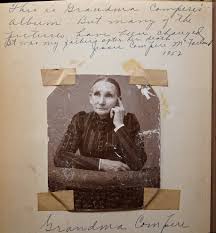 This is Grandma Compere's
Album - But many of the
pictures have been changed
It was my father's after her death.
Jessie Compere Mc
1952
Grandma Compere